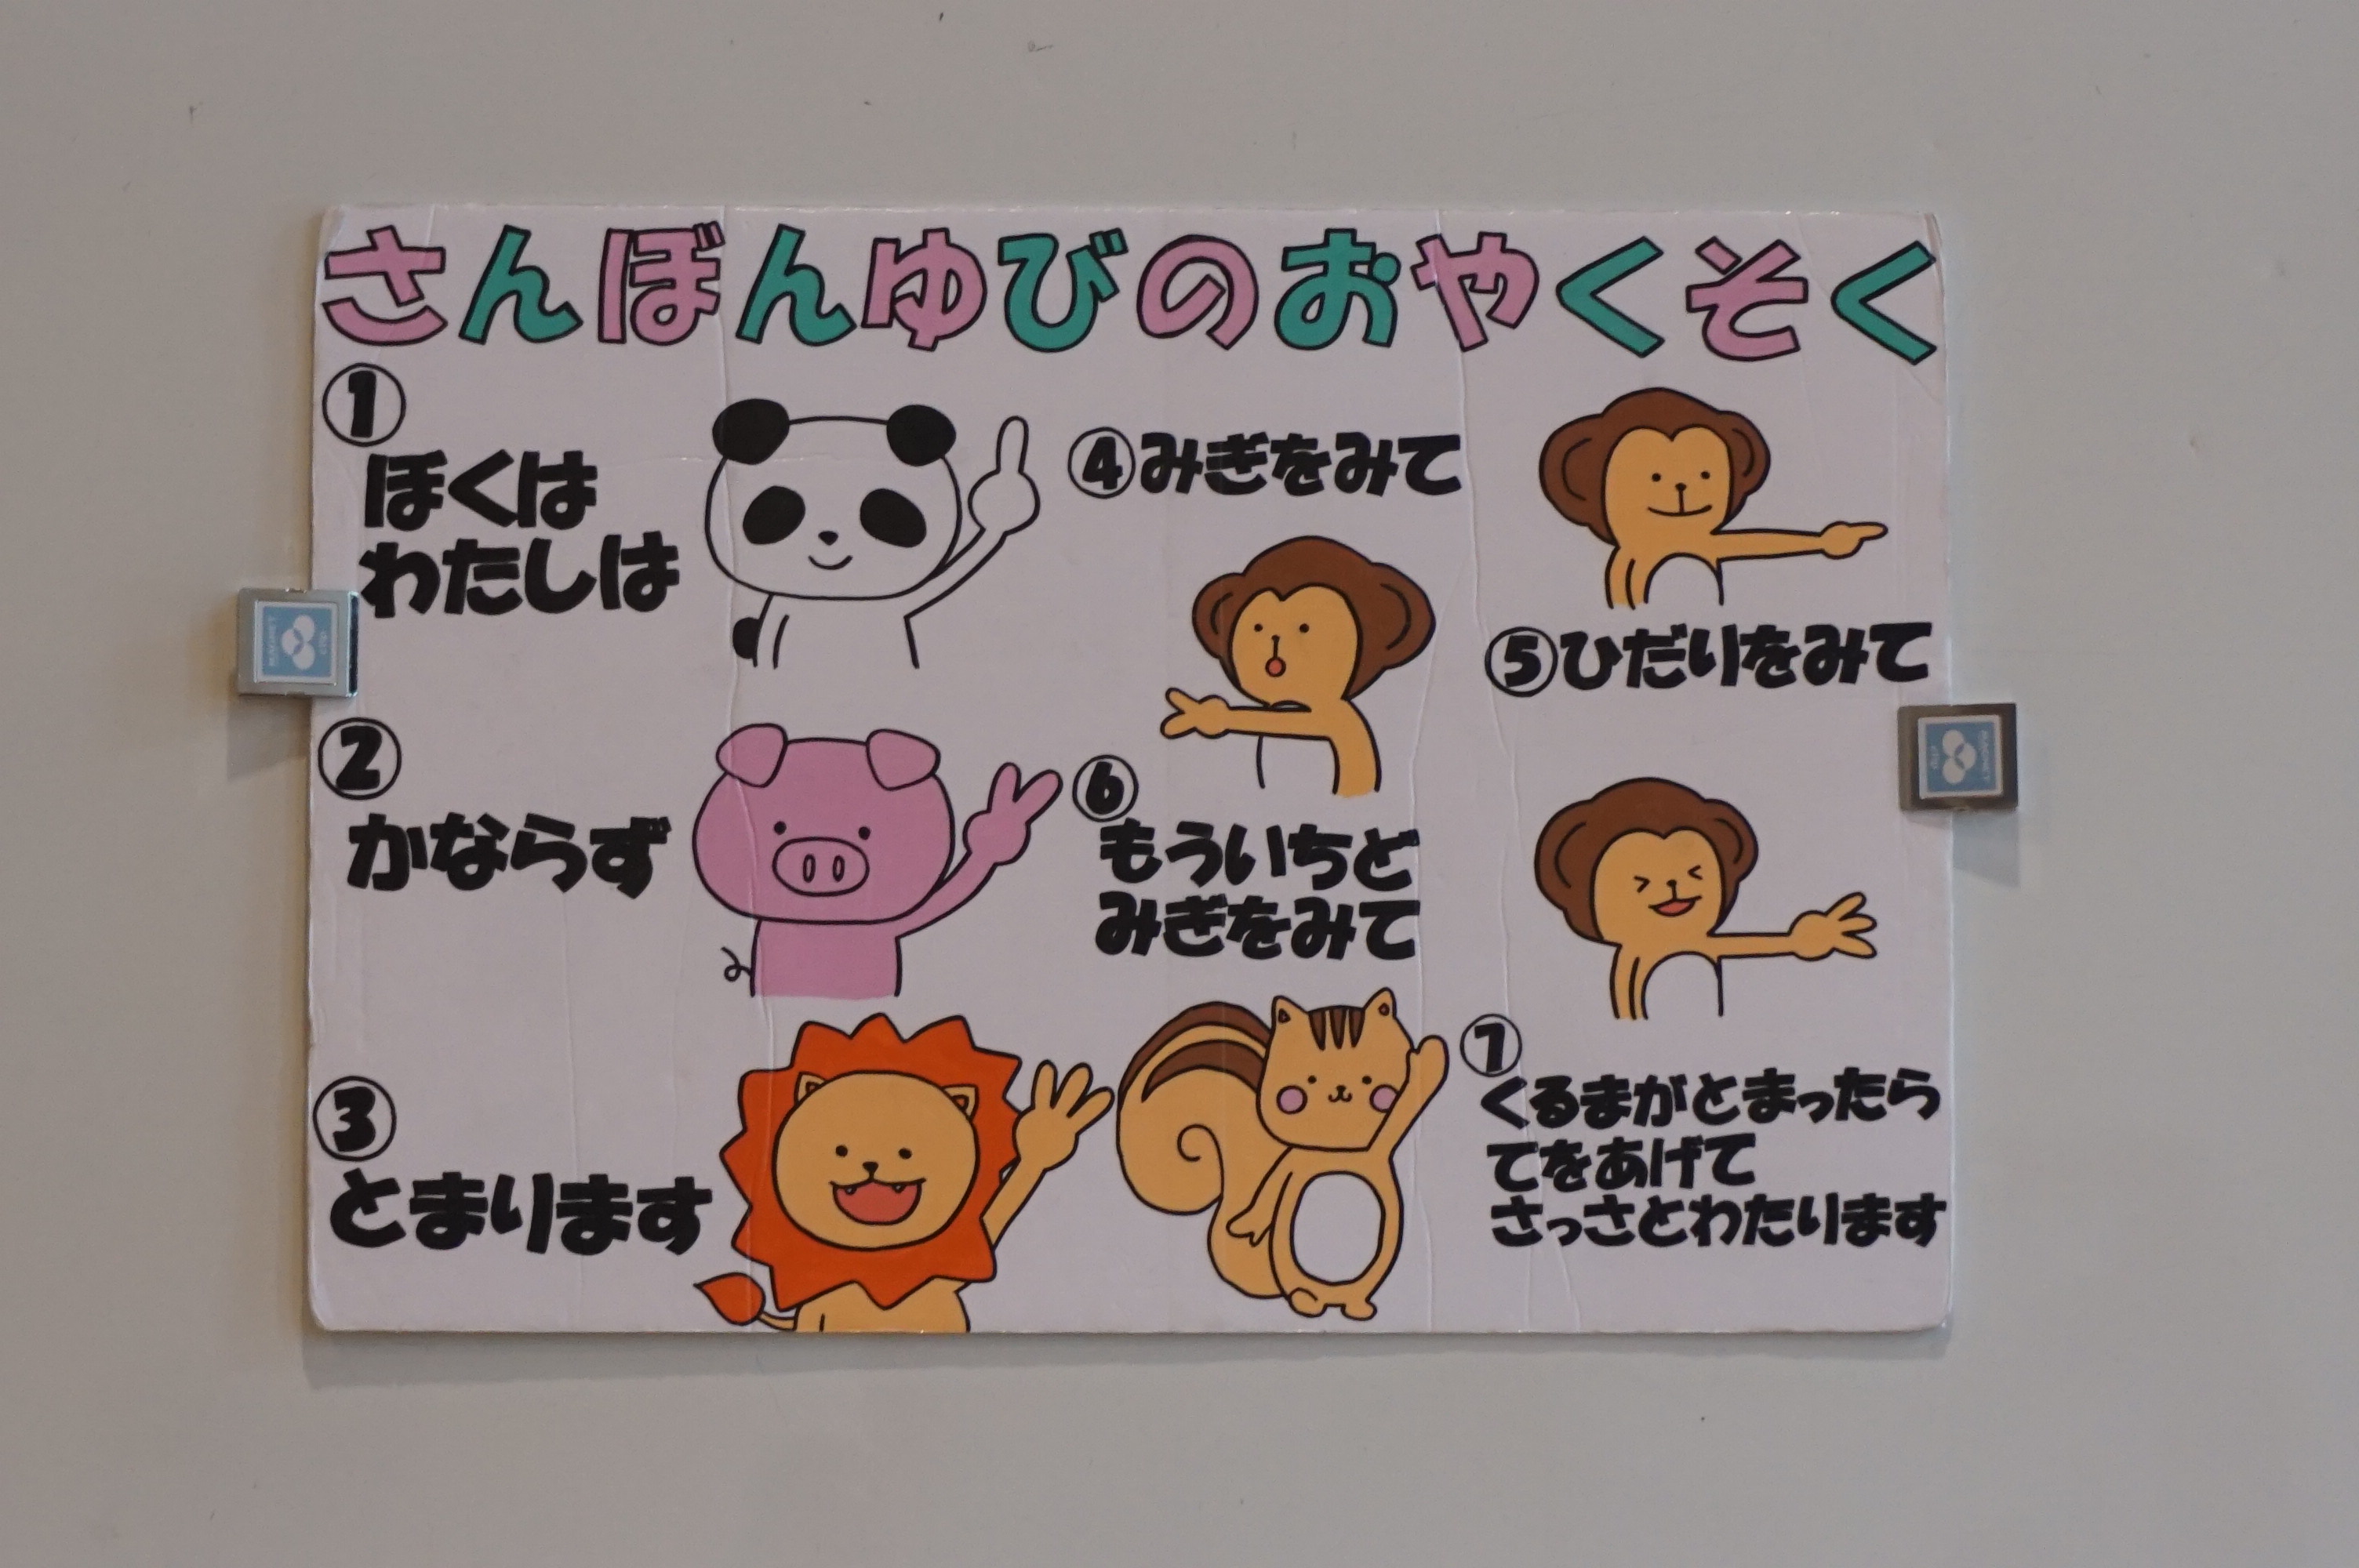 さんぼんゆびのおやくそく
①
ぼくは
わたしは
②
かならず
③
とまります
④みぎをみて
⑤ひだりをみて
⑥
もういちど
みぎをみて
⑦
くるまがとまったら
てをあげて
さっさとわたります